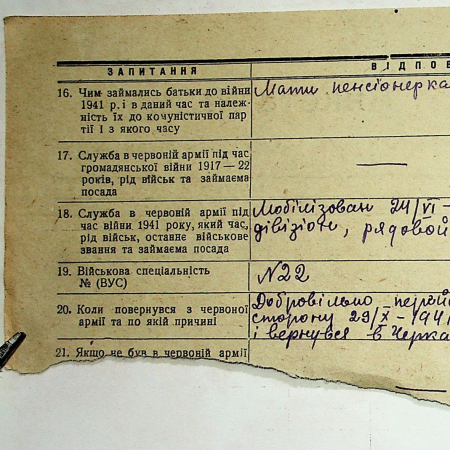 ЗАПИТАННЯ ВІДПОВ
16. Чим займались батьки до війни
1941 р. і в даний час та належ-
ність їх до комуністичної пар
тії і з якого часу
Мати пенсіонерка
17. Служба в червоній армії під час
громадянської війни 1917—22
років, рід військ та займаєма
посада
—
18. Служба в червоній армії під
час війни 1941 року, який час,
рід військ, останнє військове
звання та займаєма посада
Мобілізован 24/VI —
дівізіон, рядовой
19. Військова спеціальність
№ (ВУС)
N22
20. Коли повернувся з червоної
армії та по якій причині
Добровільно перей
сторону 29/X - 194
і вернувся в Черка
21. Якщо не був в червоній армії